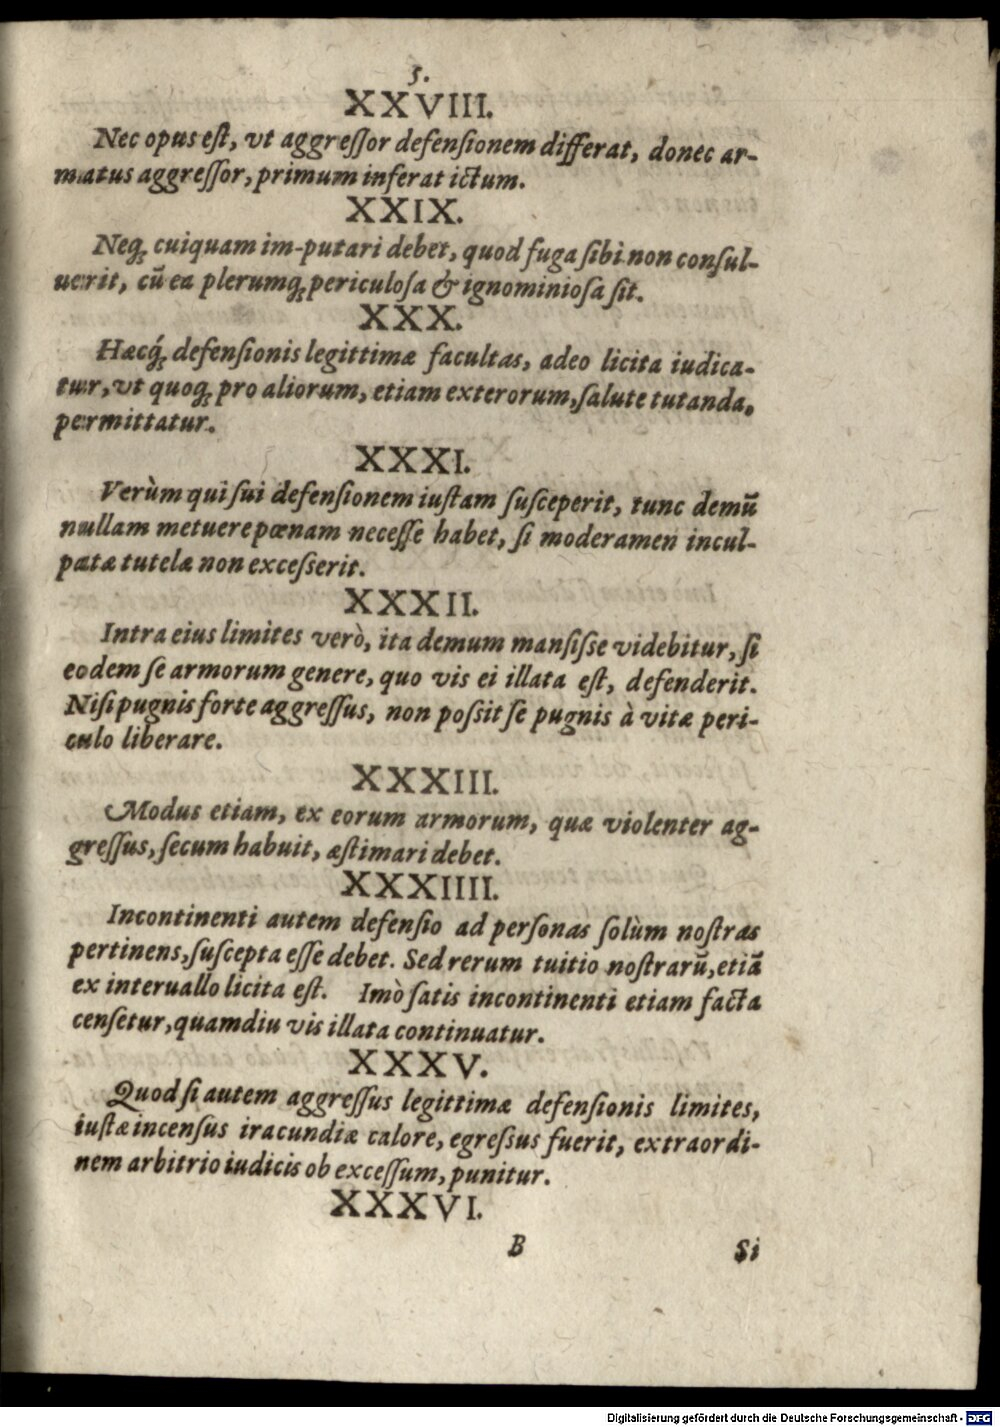 5.
XXVIII.
Nec opus eſt, vt aggreſſor defenſionem differat, donec ar-
matus aggreſſor, primum inferat ictum.
XXIX.
Neq; cuiquam im-putari debet, quod fuga ſibi non conſul-
uerit, cū ea plerumq; periculoſa & ignominioſa ſit.
XXX.
Hæcq́; defenſionis legittimæ facultas, adeo licita iudica-
tur, vt quoq; pro aliorum, etiam exterorum, ſalute tutanda,
permittatur.
XXXI.
Verùm qui ſui defenſionem iuſtam ſuſceperit, tunc demū
nullam metuere pœnam neceſſe habet, ſi moderamen incul-
patæ tutelæ non exceſserit.
XXXII.
Intra eius limites verò, ita demum manſiſse videbitur, ſi
eodem ſe armorum genere, quo vis ei illata eſt, defenderit.
Niſi pugnis forte aggreſſus, non poſsit ſe pugnis à vitæ peri-
culo liberare.
XXXIII.
Modus etiam, ex eorum armorum, quæ violenter ag-
greſſus, ſecum habuit, æſtimari debet.
XXXIIII.
Incontinenti autem defenſio ad perſonas ſolùm noſtras
pertinens, ſuſcepta eſſe debet. Sed rerum tuitio noſtrarū, etiā
ex interuallo licita eſt. Imò ſatis incontinenti etiam facta
cenſetur, quamdiu vis illata continuatur.
XXXV.
Quod ſi autem aggreſſus legittimæ defenſionis limites,
iuſtæ incenſus iracundiæ calore, egreſsus fuerit, extraordi-
nem arbitrio iudicis ob exceſſum, punitur.
XXXVI.
B Si
Digitalisierung gefördert durch die Deutsche Forschungsgemeinschaft - DFG